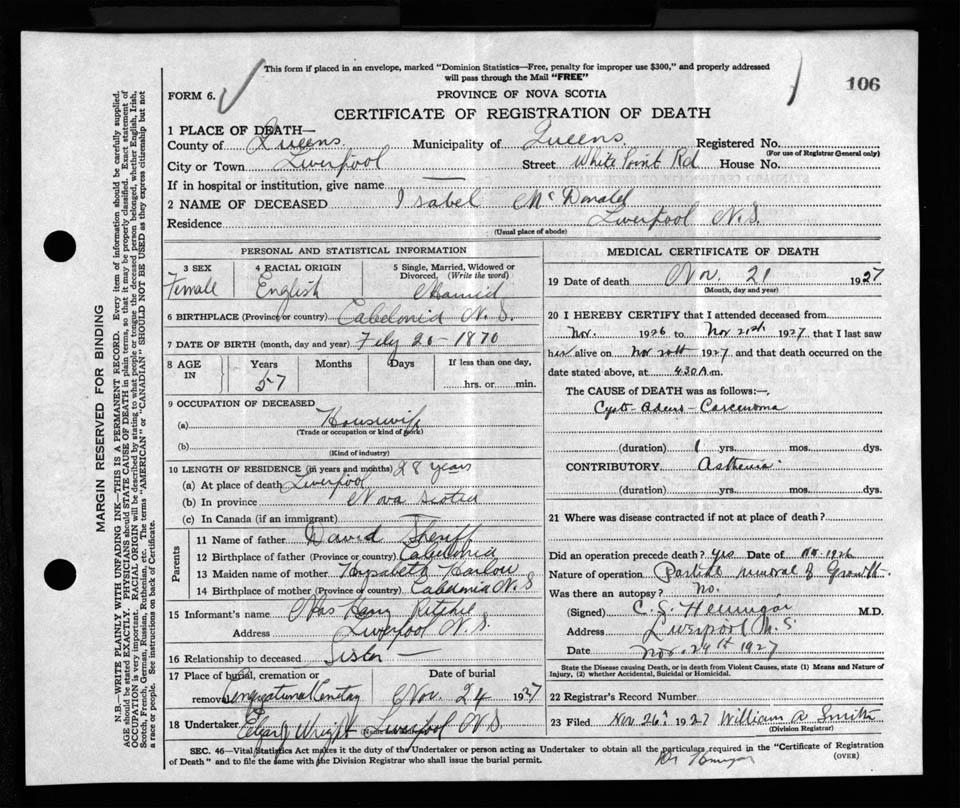 This form if placed in an envelope, marked "Dominion Statistics—Free, penalty for improper use $300," and properly addressed
will pass through the Mail "FREE"
106
FORM 6.
PROVINCE OF NOVA SCOTIA
CERTIFICATE OF REGISTRATION OF DEATH
1 PLACE OF DEATH—
County of Queens Municipality of Queens Registered No.
(For use of Registrar General only)
City or Town Liverpool Street White Point Rd House No.
If in hospital or institution, give name —
2 NAME OF DECEASED Isabel McDonald
Residence Liverpool N.S.
(Usual place of abode)
PERSONAL AND STATISTICAL INFORMATION
3 SEX 4 RACIAL ORIGIN 5 Single, Married, Widowed or
Divorced, (Write the word)
Female English Married
6 BIRTHPLACE (Province or country) Caledonia N.S.
7 DATE OF BIRTH (month, day and year) July 20-1870
8 AGE IN Years Months Days If less than one day,
57 hrs. or min.
9 OCCUPATION OF DECEASED
(a) Housewife
(Trade or occupation or kind of work)
(b)
(Kind of industry)
10 LENGTH OF RESIDENCE (in years and months) 28 years
(a) At place of death Liverpool
(b) In province Nova Scotia
(c) In Canada (if an immigrant)
Parents
11 Name of father David Sheriff
12 Birthplace of father (Province or country) Caledonia
13 Maiden name of mother Harlow
14 Birthplace of mother (Province or country) Caledonia N.S
15 Informant's name Mrs Ritchie
Address Liverpool N.S.
16 Relationship to deceased Sister —
17 Place of burial, cremation or Date of burial
removal Cemetery Nov. 24 1927
18 Undertaker Wright Liverpool N.S.
MEDICAL CERTIFICATE OF DEATH
19 Date of death Nov. 21 1927
(Month, day and year)
20 I HEREBY CERTIFY that I attended deceased from
Nov. 1926 to Nov 21st 1927, that I last saw
her alive on Nov 20th 1927 and that death occurred on the
date stated above, at 4.30 A.m.
The CAUSE of DEATH was as follows:—
Cysto-Adeno-Carcinoma
(duration) 1 yrs. mos. dys.
CONTRIBUTORY Asthenia
(duration) yrs. mos. dys.
21 Where was disease contracted if not at place of death?
Did an operation precede death? Yes Date of 1926
Nature of operation Partial removal of Growth.
Was there an autopsy? No.
(Signed) C. S. M.D.
Address Liverpool N.S
Date Nov. 24th 1927
State the Disease causing Death, or in death from Violent Causes, state (1) Means and Nature of
Injury, (2) whether Accidental, Suicidal or Homicidal.
22 Registrar's Record Number
23 Filed Nov 26th 1927 William Smith
(Division Registrar)
SEC. 46—Vital Statistics Act makes it the duty of the Undertaker or person acting as Undertaker to obtain all the particulars required in the "Certificate of Registration
of Death" and to file the same with the Division Registrar who shall issue the burial permit.
Dr
(OVER)
MARGIN RESERVED FOR BINDING
N.B.—WRITE PLAINLY WITH UNFADING INK—THIS IS A PERMANENT RECORD. Every item of information should be carefully supplied.
AGE should be stated EXACTLY. PHYSICIANS should STATE CAUSE OF DEATH in plain terms, so that it may be properly classified. Exact statement of
OCCUPATION is very important. RACIAL ORIGIN will be described by stating to what people or tongue the deceased person belonged, whether English, Irish,
Scotch, French, German, Russian, Ruthenian, etc. The terms "AMERICAN" or "CANADIAN" SHOULD NOT BE USED as they express citizenship but not
a race or people. See instructions on back of Certificate.